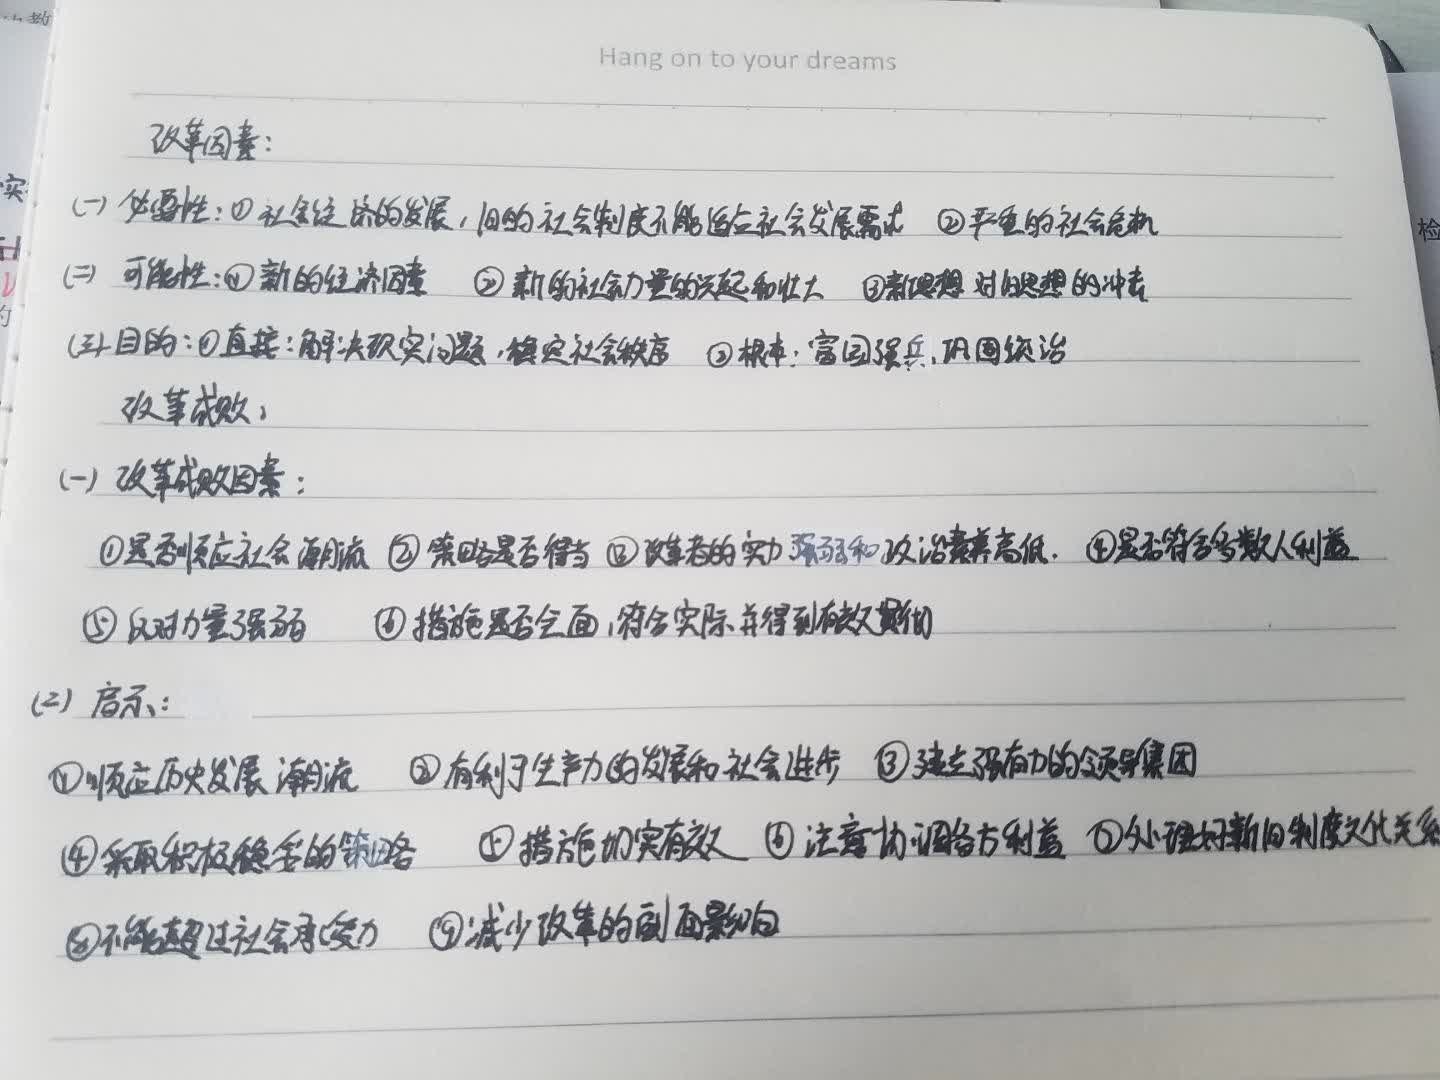 Hang on to your dreams
改革因素:
(一) 必要性:①社会经济的发展,旧的社会制度不能适应社会发展需求 ②严重的社会危机
(二) 可能性:①新的经济因素 ②新的社会力量的兴起和壮大 ③新思想对旧思想的冲击
(三) 目的:①直接:解决现实问题,稳定社会秩序 ②根本:富国强兵,巩固统治
改革成败:
(一) 改革成败因素:
①是否顺应社会潮流 ②策略是否得当 ③改革者的实力强弱和政治素养高低. ④是否符合多数人利益
⑤反对力量强弱 ⑥措施是否全面,符合实际并得到有效贯彻
(二) 启示:
①顺应历史发展潮流 ②有利于生产力的发展和社会进步 ③建立强有力的领导集团
④采取积极稳妥的策略 ⑤措施切实有效 ⑥注意协调各方利益 ⑦处理好新旧制度文化关系
⑧不能超过社会承受力 ⑨减少改革的副面影响